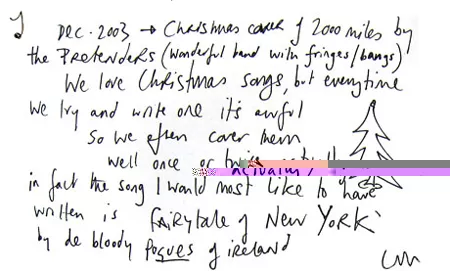 DEC. 2003 → Christmas cover of 2000 miles by
the PRETENDERS (wonderful band with fringes/bangs)
We love Christmas songs, but everytime
we try and write one it's awful
So we often cover them
well once or twice actually
in fact the song I would most like to have
written is fairytale of New YORK
by de bloody Pogues of ireland